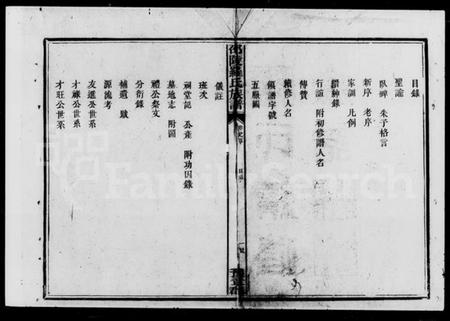 目錄
聖諭
臥碑 朱子格言
新序 老序
家訓 凡例
縉紳錄
行誼 附初修譜人名
傳贊
續修人名
領譜字號
五服圖
邵陵羅氏族譜
目錄
儀註
班次
祠堂記 公產 附功因錄
墓地志 附圖
禮公祭文
分衔錄
補遺 跋
源流考
友進公世系
才祿公世系
才旺公世系
FamilySearch